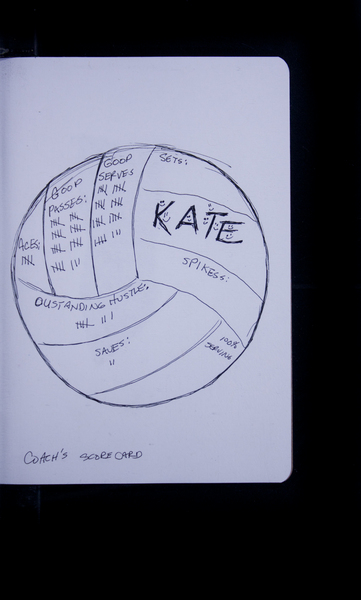 GOOD
SERVES
SETS:
GOOD
PASSES:
KATE
ACES:
SPIKESS:
OUSTANDING HUSTLE:
SAVES:
100%
SERVING
COACH'S SCORECARD